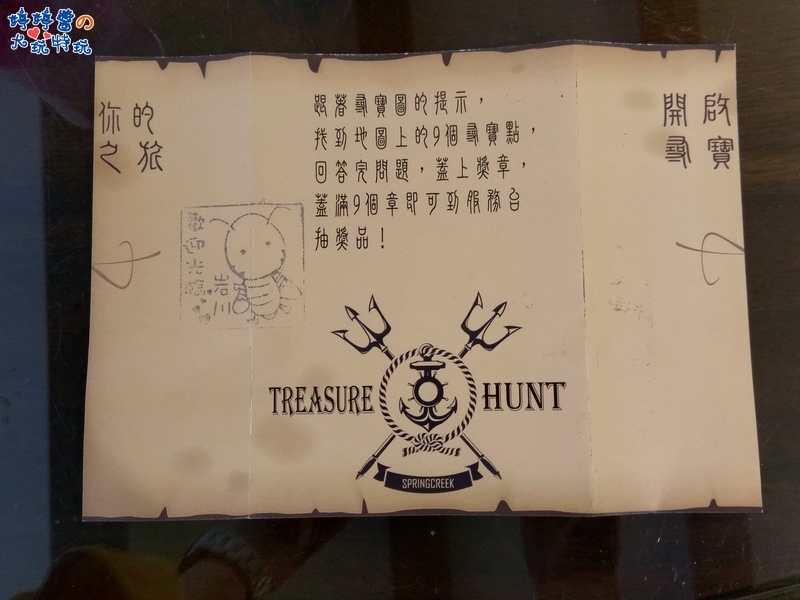 婷婷營の
大玩特玩
你的
之旅
跟著尋寶圖的提示，
找到地圖上的9個尋寶點，
回答完問題，蓋上獎章，
蓋滿9個章即可到服務台
抽獎品！
開啟
尋寶
歡迎光臨
岩川
TREASURE HUNT
SPRINGCREEK